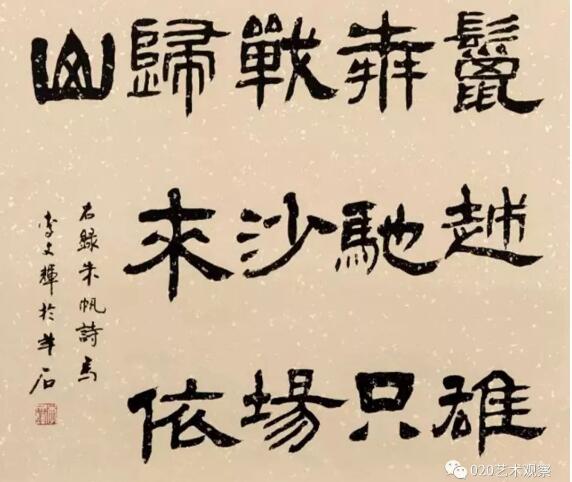 鬣越雄
奔馳只
戰沙場
歸來依
山
右録朱帆詩馬
李文輝於羊石
020艺术观察